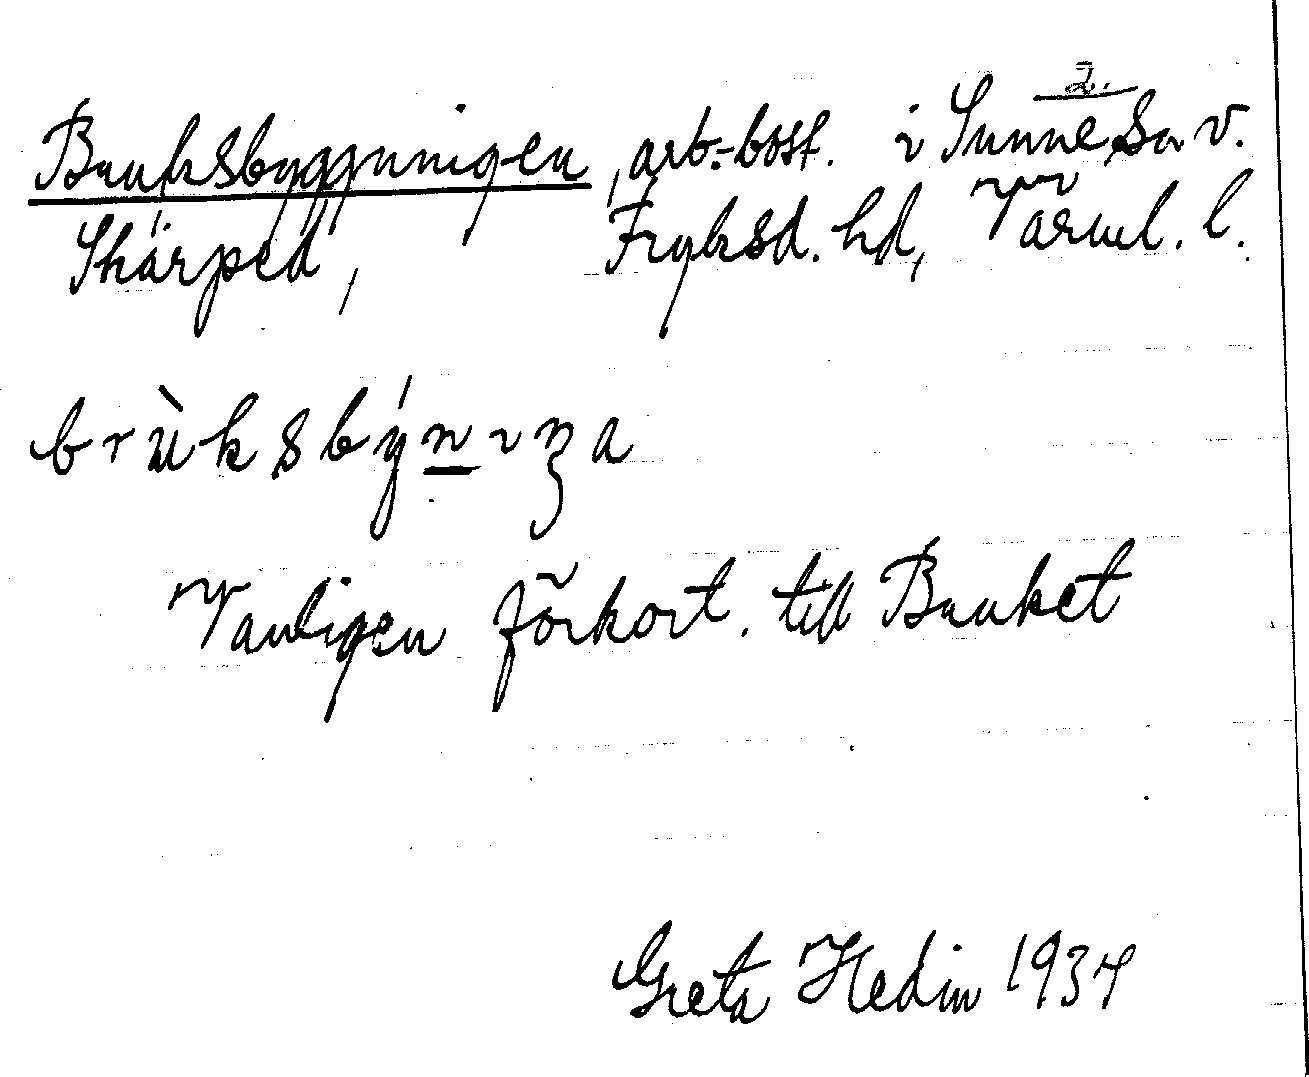 2.
Bruksbyggningen, arb.-bost. i Sunne Sn v.
Skärped, Fryksd. hd, Värml. l.
brùksbýnıŋa
Vanligen förkort. till Bruket
Greta Hedin 1934